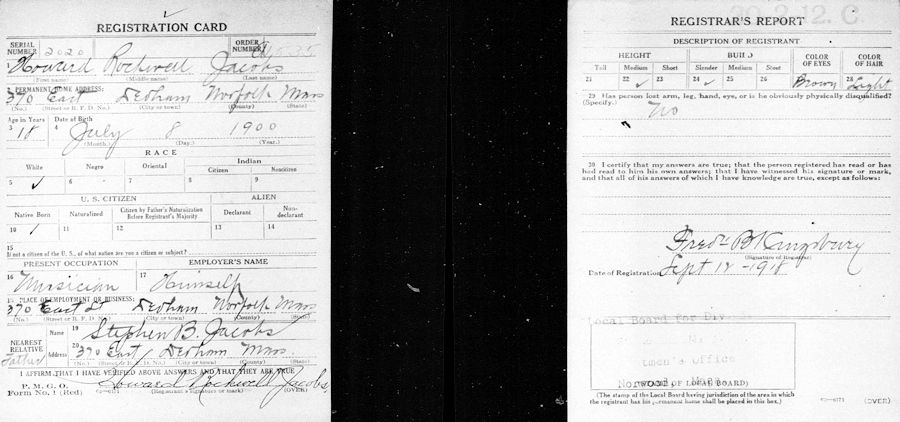 REGISTRATION CARD
SERIAL NUMBER 2020 ORDER NUMBER
1 Howard Rockwell Jacobs
(First name) (Middle name) (Last name)
2 PERMANENT HOME ADDRESS:
370 East Dedham Norfolk Mass
(No.) (Street or R. F. D. No.) (City or town) (County) (State)
Age in Years Date of Birth
3 18 4 July 8 1900
(Month.) (Day.) (Year.)
RACE
White Negro Oriental Indian
Citizen Noncitizen
5 ✓ 6 7 8 9
U. S. CITIZEN ALIEN
Native Born Naturalized Citizen by Father's Naturalization Before Registrant's Majority Declarant Non-declarant
10 ✓ 11 12 13 14
15
If not a citizen of the U. S., of what nation are you a citizen or subject?
PRESENT OCCUPATION EMPLOYER'S NAME
16 Musician 17 Himself
18 PLACE OF EMPLOYMENT OR BUSINESS:
370 East St Dedham Norfolk Mass
(No.) (Street or R. F. D. No.) (City or town) (County) (State)
NEAREST RELATIVE Name 19 Stephen B. Jacobs
Father Address 20 370 East Dedham Mass
(No.) (Street or R. F. D. No.) (City or town) (County) (State)
I AFFIRM THAT I HAVE VERIFIED ABOVE ANSWERS AND THAT THEY ARE TRUE
P. M. G. O.
Form No. 1 (Red) Howard Rockwell Jacobs
(Registrant's signature or mark) (OVER)
REGISTRAR'S REPORT
DESCRIPTION OF REGISTRANT
HEIGHT BUILD COLOR OF EYES COLOR OF HAIR
Tall Medium Short Slender Medium Stout
21 22 ✓ 23 24 ✓ 25 26 27 Brown 28 Light
29 Has person lost arm, leg, hand, eye, or is he obviously physically disqualified?
(Specify.) No
30 I certify that my answers are true; that the person registered has read or has
had read to him his own answers; that I have witnessed his signature or mark,
and that all of his answers of which I have knowledge are true, except as follows:
Fredc B Kingsbury
(Signature of Registrar)
Date of Registration Sept 12 - 1918
Local Board for Div.
Norwood, Mass
(STAMP OF LOCAL BOARD)
(The stamp of the Local Board having jurisdiction of the area in which
the registrant has his permanent home shall be placed in this box.)
(OVER)